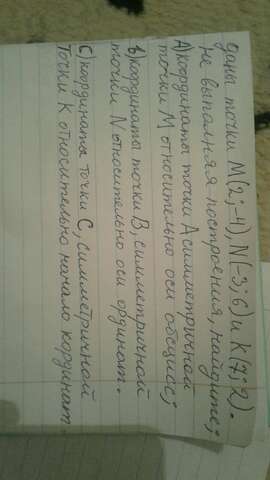 даны точки M(2;-4), N(-3;6) и K(7;2).
не выполняя построения, найдите;
А) координаты точки A симетричной
точки M относительно оси абсцисс;
В) координаты точки B, симметричной
точки N относительно оси ординат.
С) координата точки C, симметричной
точки K относительно начало кординат